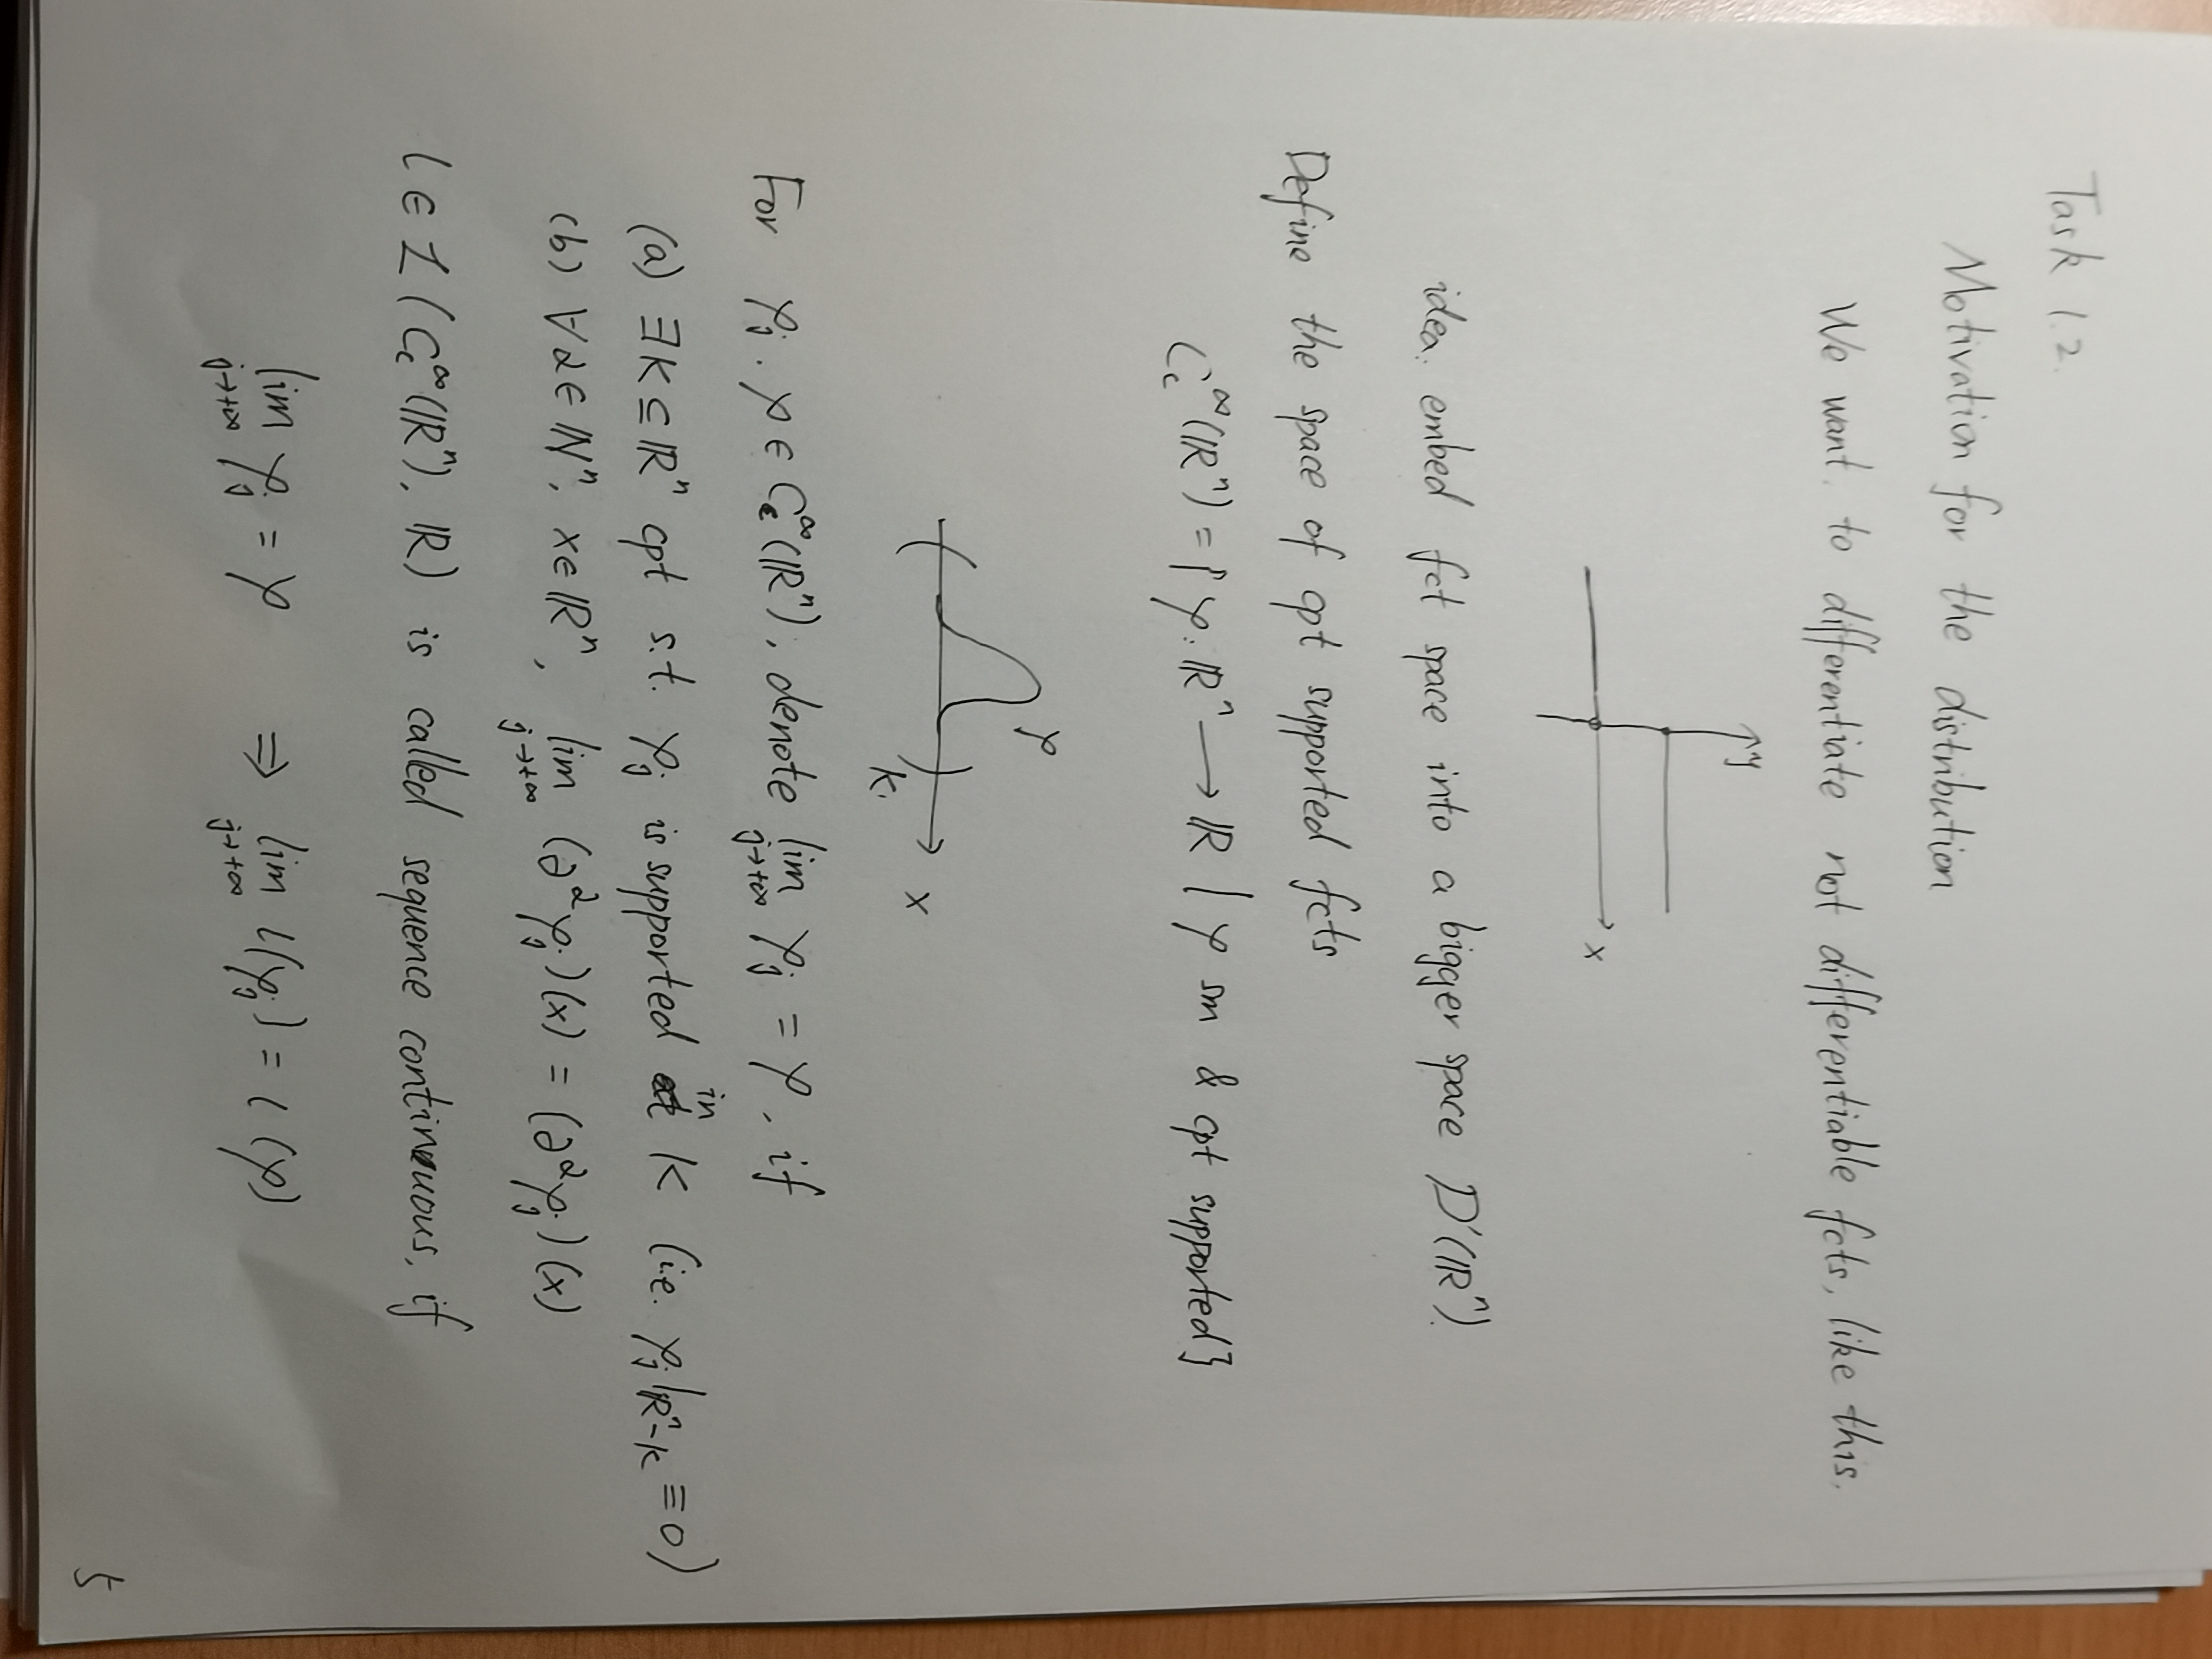 Task 1.2.
Motivation for the distribution
We want to differentiate not differentiable fcts, like this.
y
x
idea: embed fct space into a bigger space D'(ℝⁿ).
Define the space of cpt supported fcts
C_c^∞(ℝⁿ) = { φ: ℝⁿ ⟶ ℝ | φ sm & cpt supported }
φ
x
K.
For φ_j, φ ∈ C_c^∞(ℝⁿ), denote lim_{j→+∞} φ_j = φ, if
(a) ∃K ⊆ ℝⁿ cpt s.t. φ_j is supported in K (i.e. φ_j|_{ℝⁿ-K} ≡ 0)
(b) ∀α ∈ ℕⁿ, x ∈ ℝⁿ, lim_{j→+∞} (∂^α φ_j)(x) = (∂^α φ_j)(x)
l ∈ ℒ(C_c^∞(ℝⁿ), ℝ) is called sequence continuous, if
lim_{j→+∞} φ_j = φ ⇒ lim_{j→+∞} l(φ_j) = l(φ)
5